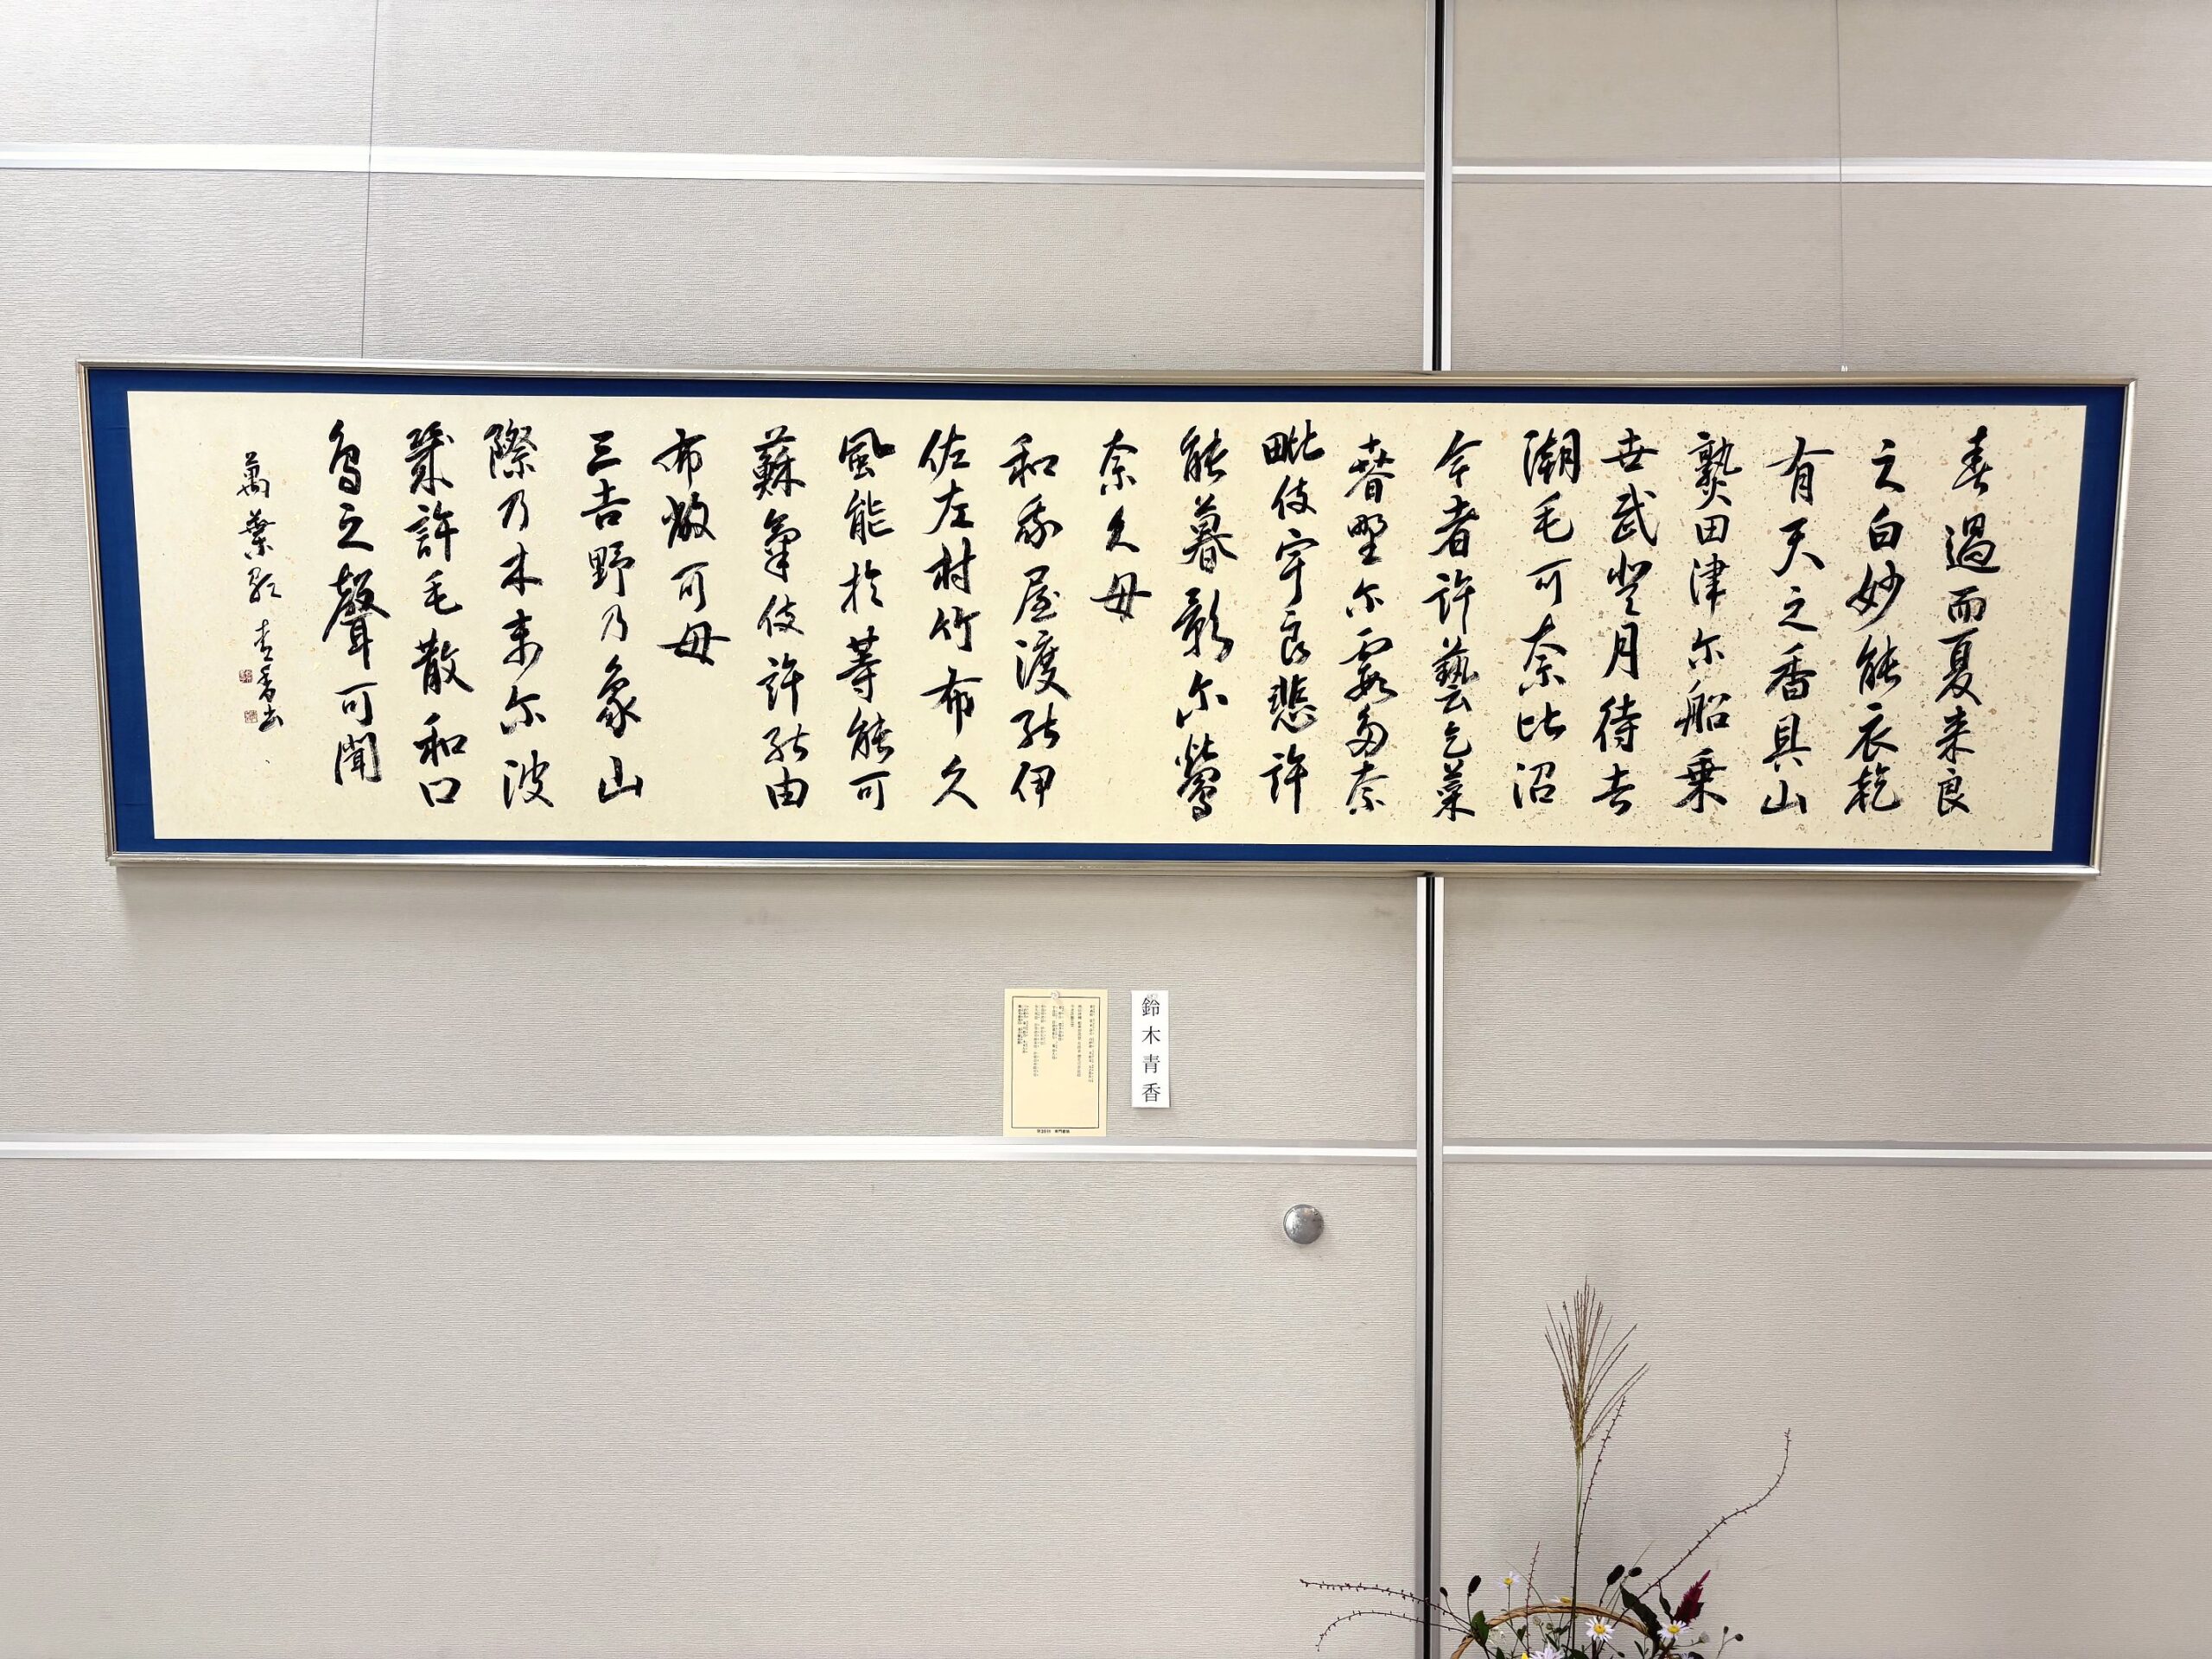 春過而夏来良
之白妙能衣乾
有天之香具山
熟田津尓船乗
世武登月待者
潮毛可奈比沼
今者許藝乞菜
春野尓霞多奈
毗伎宇良悲許
能暮影尓鶯
奈久母
和我屋渡能伊
佐左村竹布久
風能於等能可
蘇氣伎許能由
布敝可母
三吉野乃象山
際乃木末尓波
幾許毛散和口
鳥之聲可聞
萬葉歌 青香書
鈴木青香